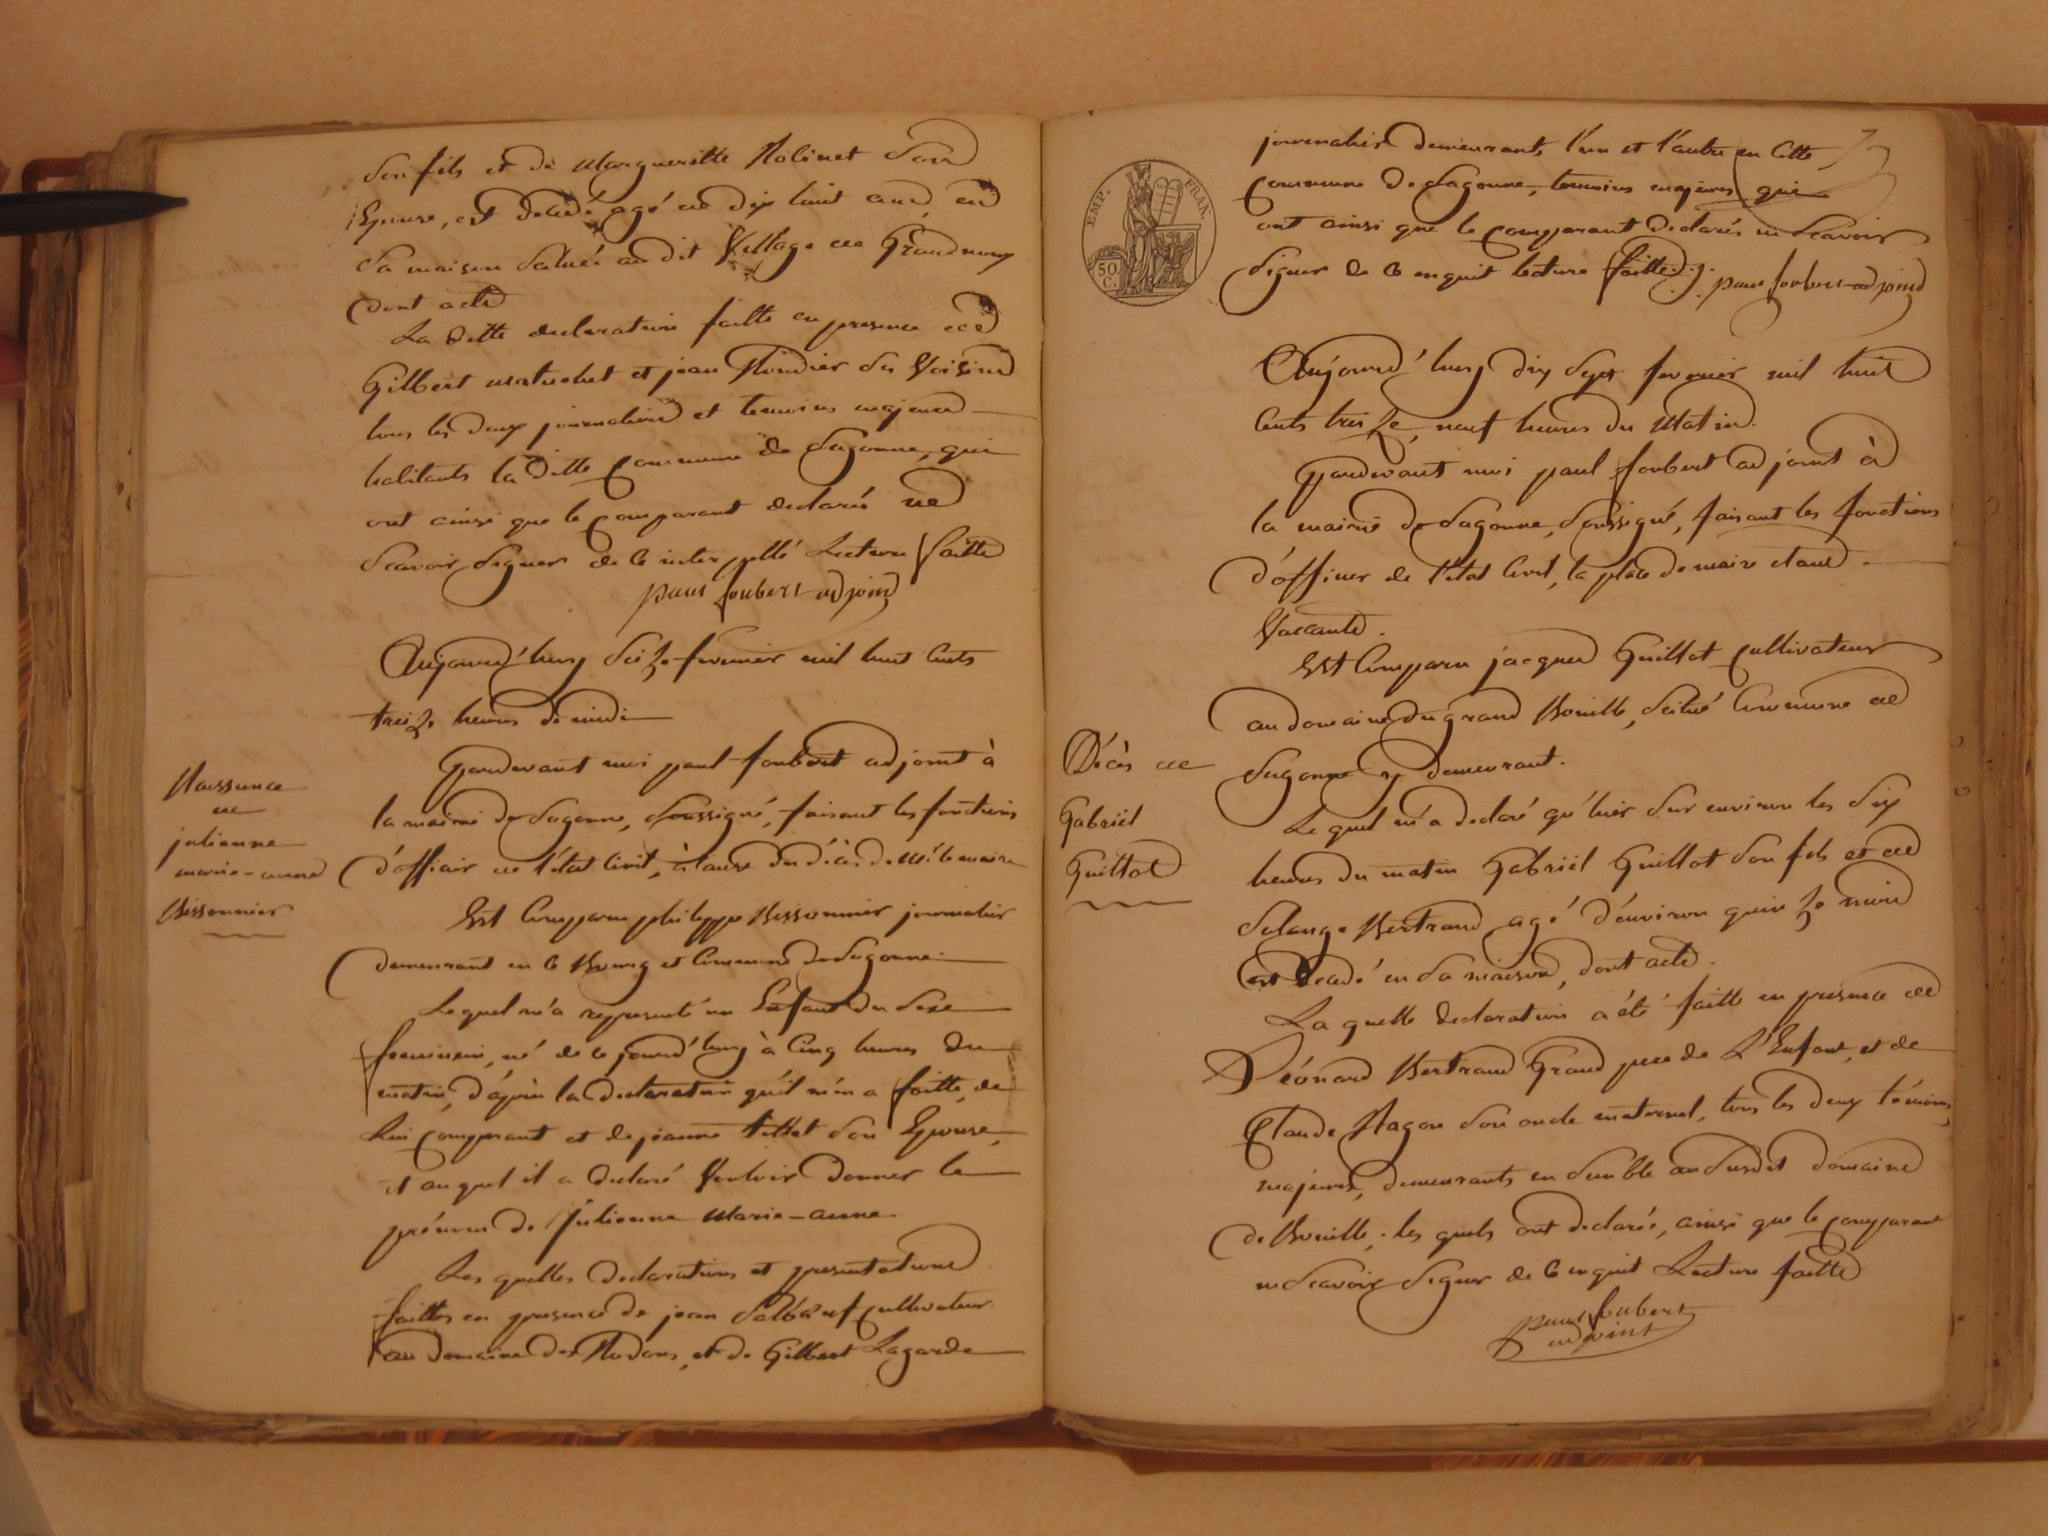 son fils et de Margueritte Robinet son
Epouse, est décedé agé de dix huit ans, en
sa maison située au dit Village de Grandmay
dont acte
La ditte declaration faitte en presence de
Gilbert et jean ses Voisins
tous les deux journaliers et temoins majeurs
habitants la ditte commune de Sagonne, qui
ont ainsi que le comparant declarés ne
scavoir signer de ce interpellé Lecture faitte
paul foubert adjoind
Aujourd'huy seize fevrier mil huit cents
treize heures de midi
Pardevant moi paul foubert adjoint à
la mairie de Sagonne, soussigné, faisant les fonctions
d'officier de l'état civil, à cause du décès de Mr le maire
Naissance
de
julienne
marie-anne
Bissonnier
Est Comparu philippe Bissonnier journalier
demeurant en ce Bourg et Commune de Sagonne
Lequel m'a representé un Enfant du Sexe
feminin, né de ce jourd'huy à Cinq heures du
matin, d'après la declaration qu'il m'en a faitte, de
Lui comparant et de jeanne tillet son Epouse,
et auquel il a declaré Vouloir Donner le
prénom de Julienne Marie-anne
Les quelles declarations et presentations
faittes en presence de jean cultivateur
au domaine des et de Gilbert Lagarde
EMP. FRAN.
50 C.
journalier demeurants l'un et l'autre en Cette
Commune de Sagonne, temoins majeurs qui
ont ainsi que le comparant declarés ne scavoir
signer de ce enquit lecture faitte
paul foubert adjoind
Aujourd'huy dix sept fevrier mil huit
Cents treize neuf heures du Matin
Pardevant moi paul foubert adjoint à
la mairie de Sagonne, soussigné, faisant les fonctions
d'officier de l'état Civil, la place de maire etant
Vaccante.
Est Comparu jacques Guillot cultivateur
au domaine du grand Bouille, scitué Commune de
Sagonne y demeurant.
Décès de
Gabriel
Guillot
Le quel m'a declaré qu'hier sur environ les dix
heures du matin Gabriel Guillot son fils et de
Solange Bertrand agé d'environ quinze mois
est decedé en sa maison, dont acte.
La quelle declaration a été faitte en presence de
Léonard Bertrand Grand pere de L'Enfant, et de
Claude Ragon son oncle maternel, tous les deux témoins
majeurs, demeurants ensemble au susdit domaine
de Bouille, les quels ont declarés, ainsi que le comparant
ne scavoir signer de ce enquit Lecture faitte
paul foubert
adjoint